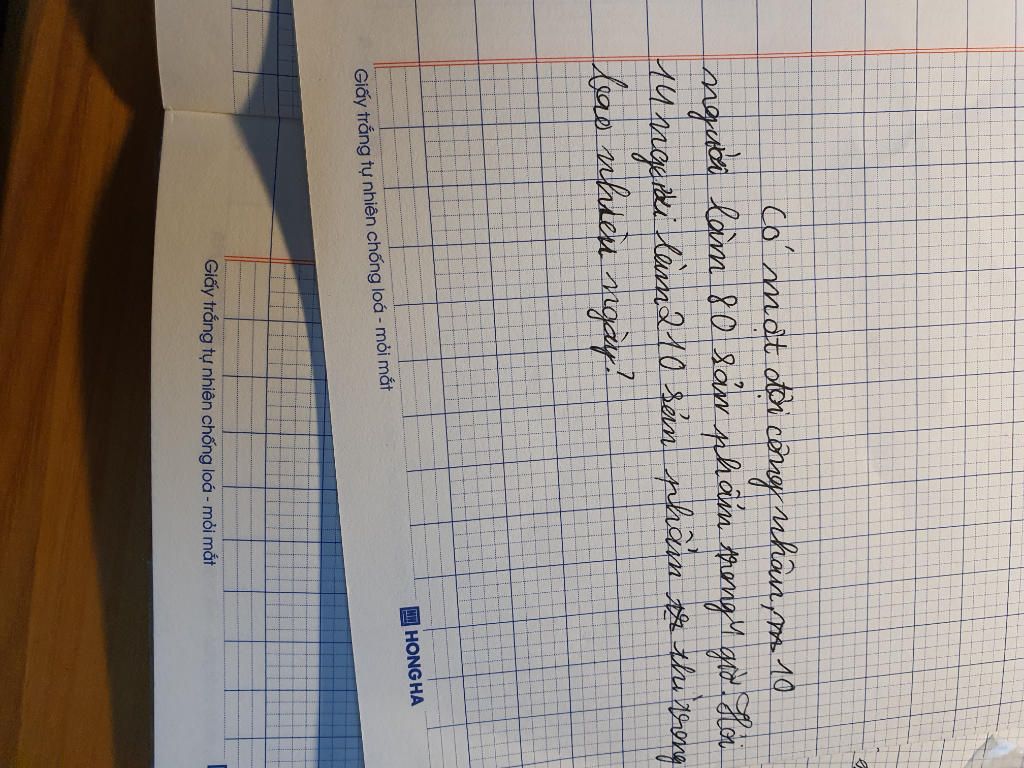 Có một đội công nhân, 10
người làm 80 sản phẩm trong 4 giờ. Hỏi
14 người làm 210 sản phẩm thì trong
bao nhiêu ngày?
Giấy trắng tự nhiên chống loá - mỏi mắt
HONG HA
Giấy trắng tự nhiên chống loá - mỏi mắt